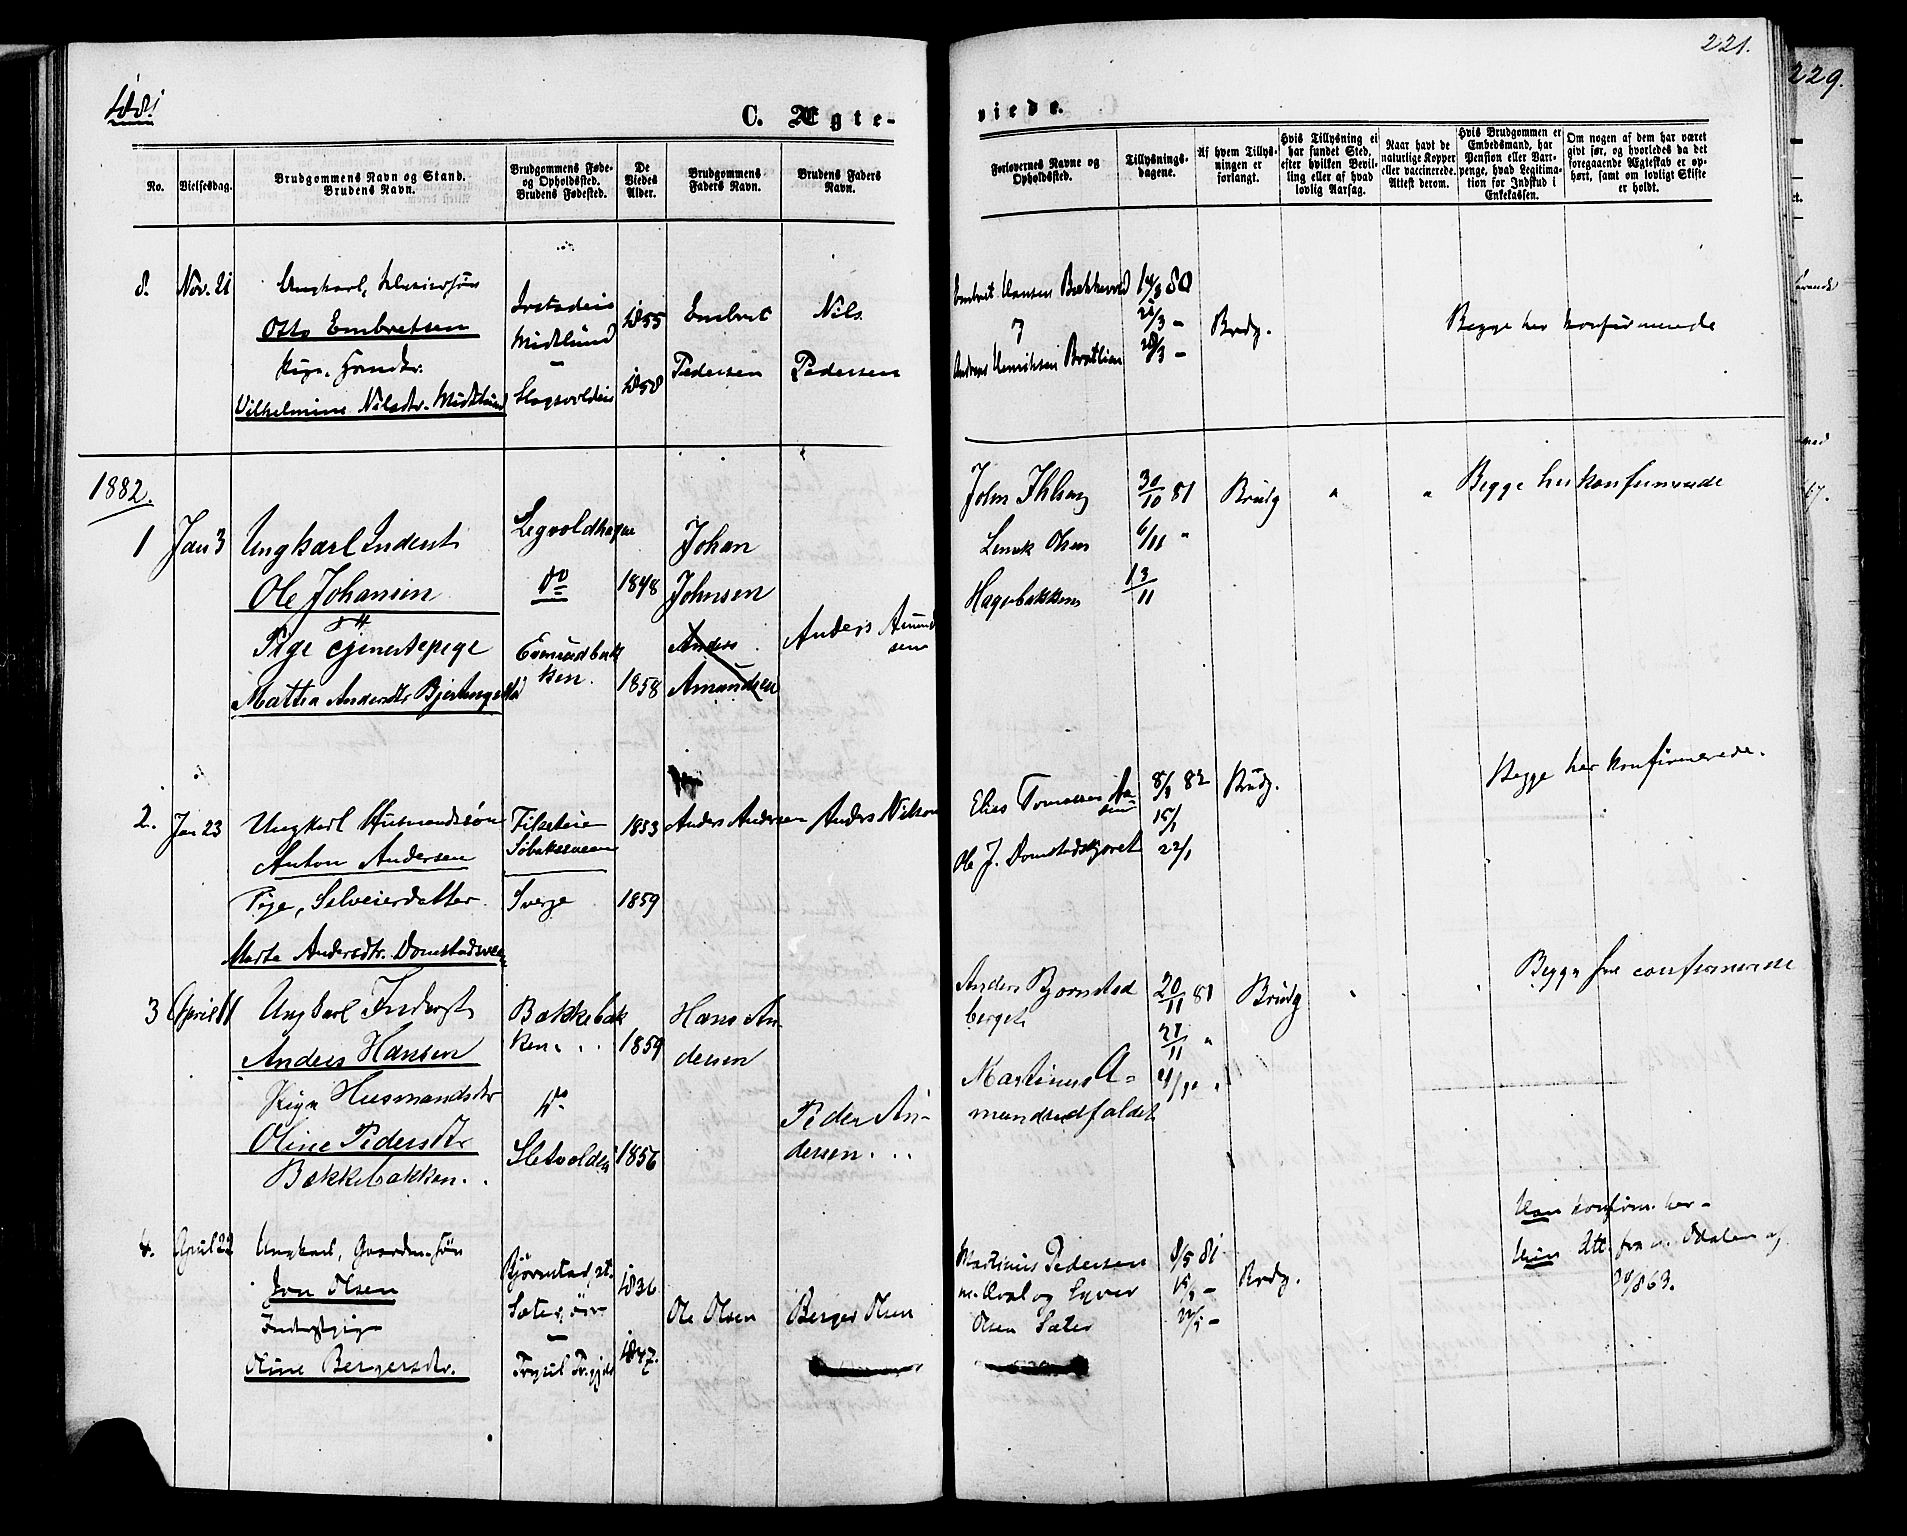 1881
221.
229.
C. Ægte-
viede.
No.
Vielsesdag.
Brudgommens Navn og Stand.
Brudens Navn.
Brudgommens Føde-
og Opholdssted.
Brudens Fødested.
De
Viedes
Alder.
Brudgommens
Faders Navn.
Brudens Faders
Navn.
Forlovernes Navne og
Opholdssted.
Tillysnings-
dagene.
Af hvem Tillys-
ningen er
forlangt.
Hvis Tillysning ei
har fundet Sted,
efter hvilken Bevil-
ling eller af hvad
lovlig Aarsag.
Naar havt de
naturlige Kopper
eller vaccinerede.
Attest derom.
Hvis Brudgommen er
Embedsmand, har
Pension eller Vart-
penge, hvad Legitima-
tion for Indskud i
Enkekassen.
Om nogen af dem har været
givt før, og hvorledes da det
foregaaende Ægteskab er op-
hørt, samt om lovligt Skifte
er holdt.
8. Nov. 21
Ungkarl, Selveiersøn
Otto Embretsen
Pige, Gaardtr.
Vilhelmine Nilsdtr. Midtlund
Midtlund
1855
1858
Embret
Pedersen
Nils
Pedersen
Embret Hansen Bækkevold
og
Andreas Henriksen Bratlien
14/3 80
21/3 -
28/3 -
Brudg.
Begge her konfirmerede
1882.
1 Jan 3
Ungkarl Inderst
Ole Johansen
Pige Tjenestepige
Mathea Andersdtr Bjertengestad
do
Evensedbak
ken.
1848
1858
Johan
Johnsen
Anders
Amundsen
Anders Amund
sen
John
Olsen
Hagebakken
30/10 81
6/11 "
13/11
Brudg
" "
Begge her konfirmerede
2. Jan 23
Ungkarl Husmandssøn
Anton Andersen
Pige, Selveierdatter
Marte Andersdtr. Domstadsveen
Sverge
1853
1859
Anders Andersen
Anders Nilsen
Elias Tomassen Aa-
Ole J. Domstadskjæret
8/1 82
15/1
22/1
Brudg.
Begge her konfirmerede.
3 April 11
Ungkarl Inderst
Anders Hansen
Pige Husmandsdtr
Oline Pedersdtr
Bækkebakken.
Bækkebak
ken.
do
Sletvolden
1859
1856
Hans An-
dersen
Peder An-
dersen
Anders Bjørnstad
berget
Martinus A-
mundsedfaldet
20/11 81
27/11 "
4/12 "
Brudg
Begge her confirmerede
4. April 22
Ungkarl, Gaardm.søn
Jon Olsen
Inderstpige
Oline Bergersdtr.
Bjørnstad,
Trysil
1836
1847.
Ole Olsen
Berger Olsen
Martinus Pedersen
og Syver
Olsen Sæter
8/5 81
15/5 -
22/5 -
Brudg.
Han konfirm. her -
Hun Att. fra Odalen af
1863.